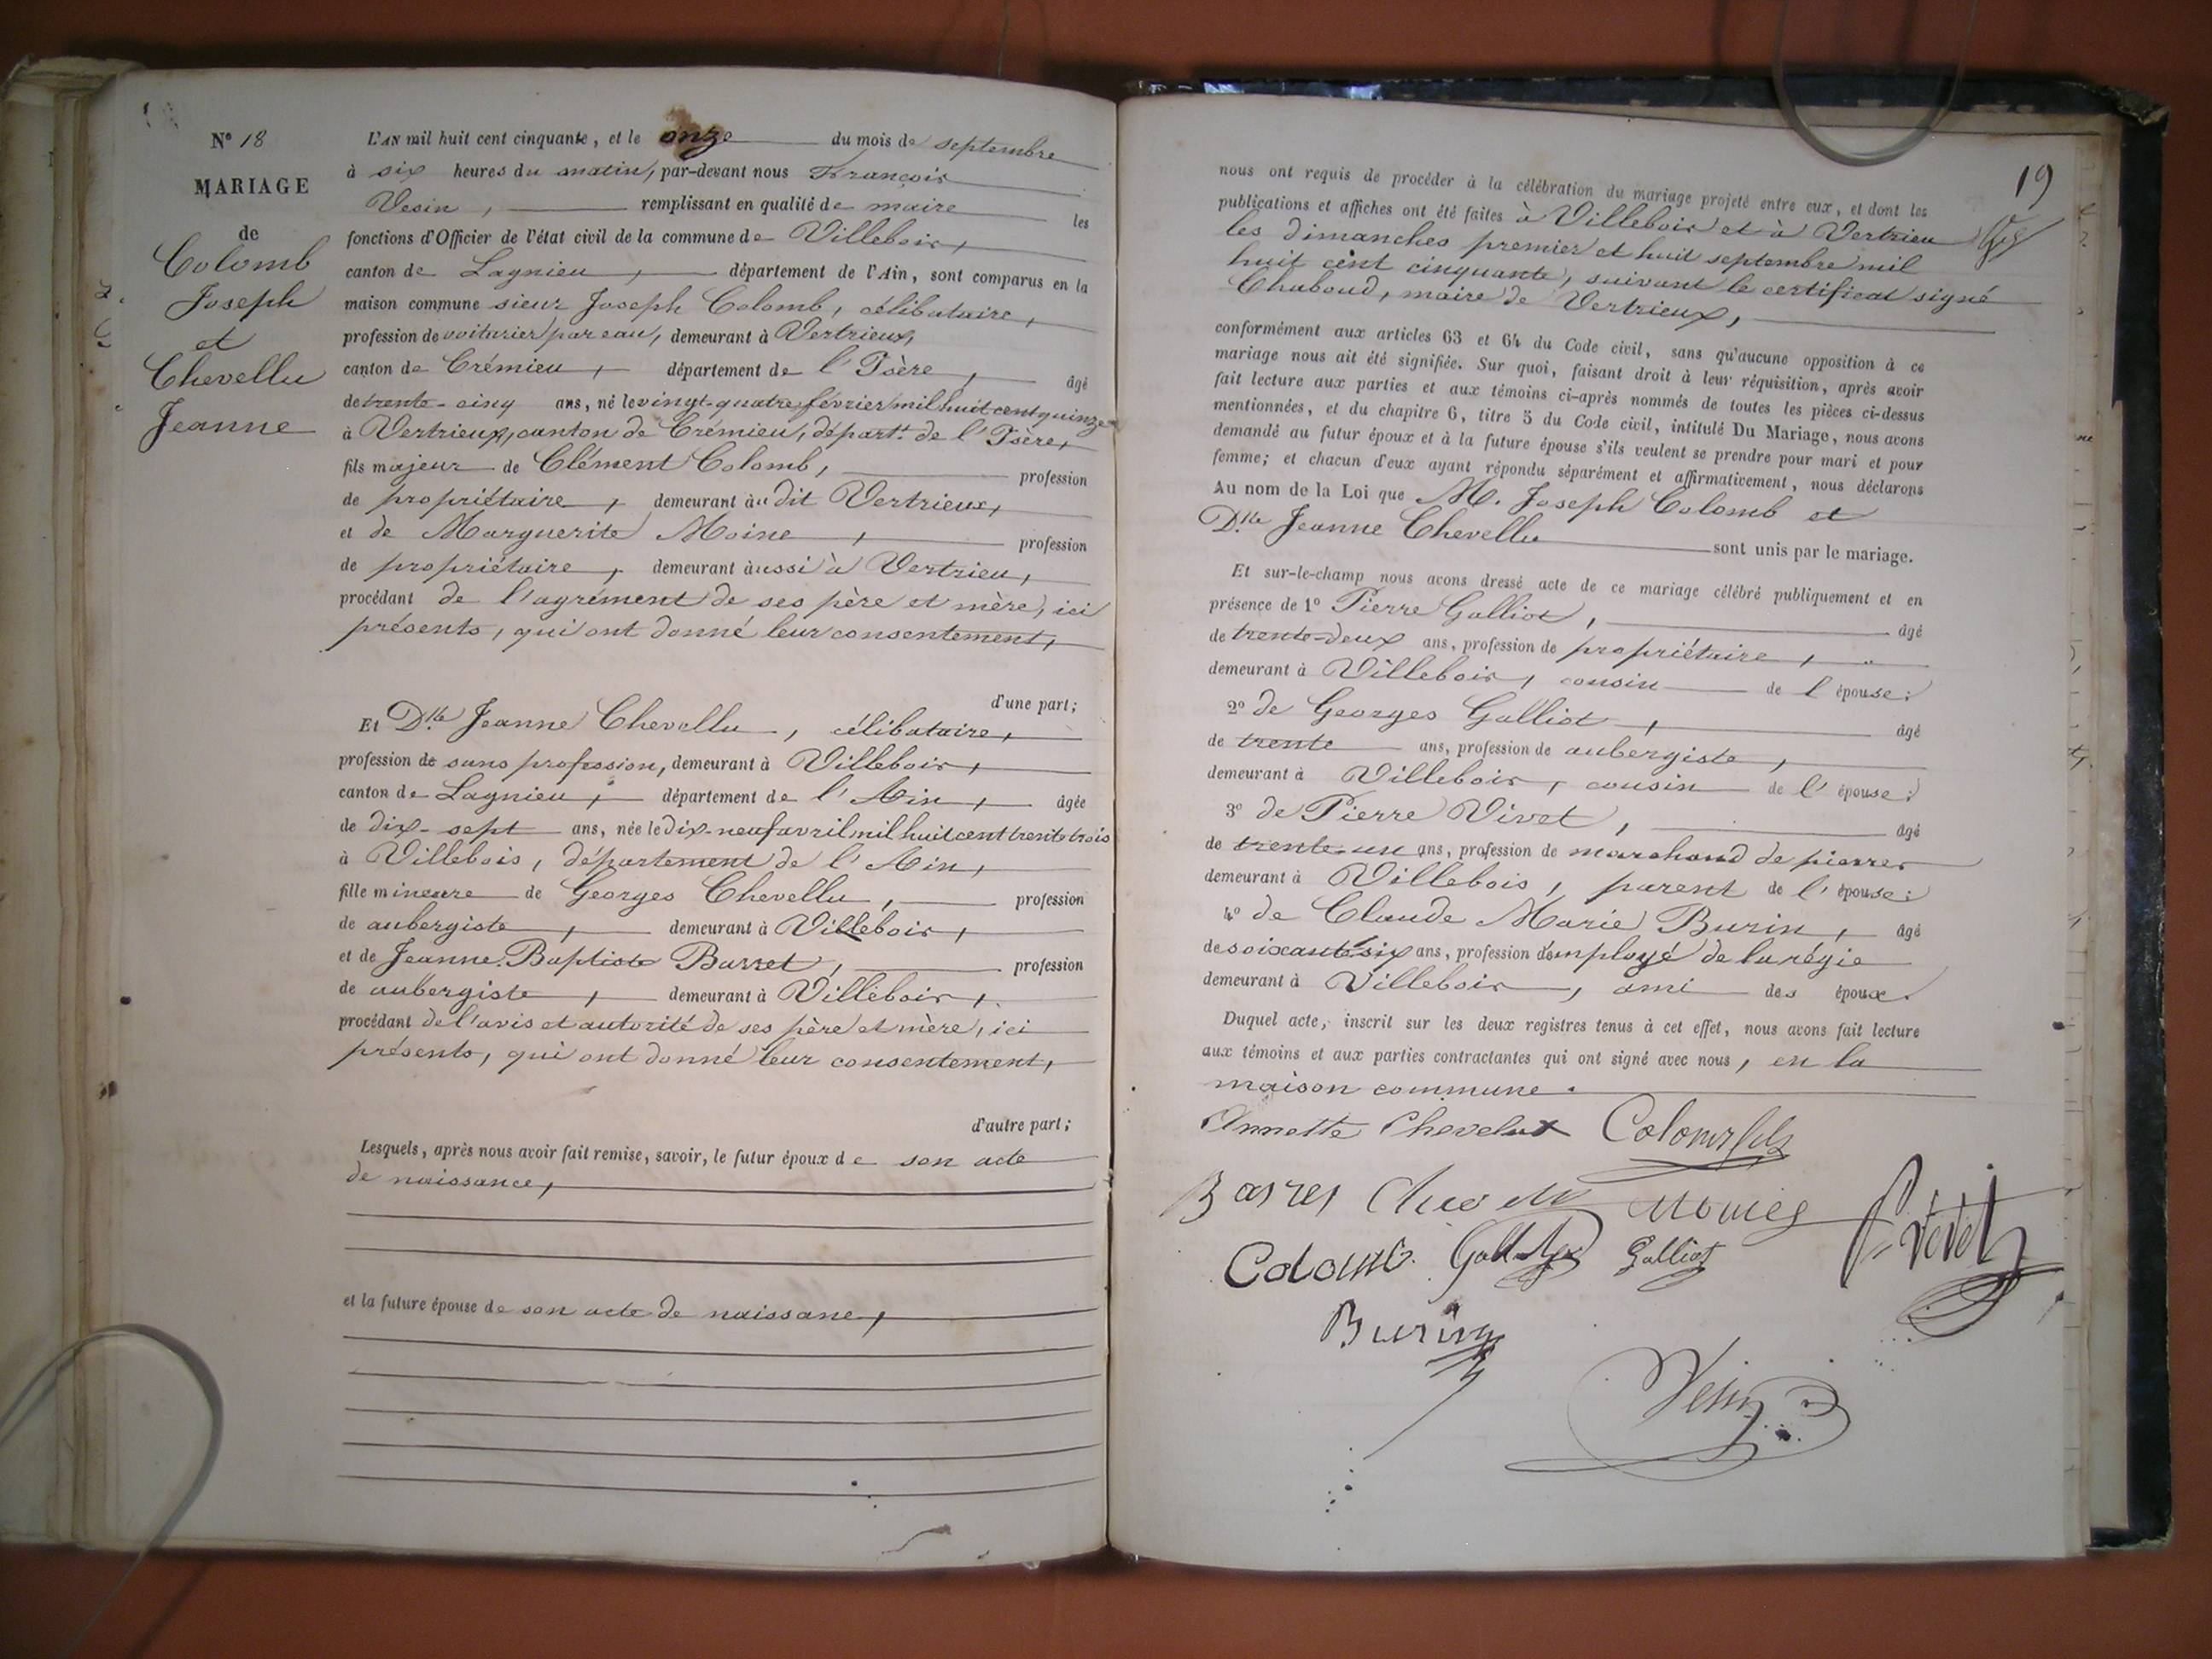 N° 18
MARIAGE
de
Colomb
Joseph
et
Chevellu
Jeanne
L'AN mil huit cent cinquante, et le onze du mois de septembre
à six heures du matin, par-devant nous François
Vesin, remplissant en qualité de maire les
fonctions d'Officier de l'état civil de la commune de Villebois,
canton de Lagnieu, département de l'Ain, sont comparus en la
maison commune sieur Joseph Colomb, célibataire,
profession de voiturier par eau, demeurant à Vertrieux,
canton de Crémieu, département de l'Isère, âgé
de trente-cinq ans, né le vingt-quatre février mil huit cent quinze
à Vertrieux, canton de Crémieu, départt. de l'Isère,
fils majeur de Clément Colomb, profession
de propriétaire, demeurant au dit Vertrieux,
et de Marguerite Moine, profession
de propriétaire, demeurant aussi à Vertrieu,
procédant de l'agrément de ses père et mère, ici
présents, qui ont donné leur consentement,
d'une part;
Et Dlle Jeanne Chevellu, célibataire,
profession de sans profession, demeurant à Villebois,
canton de Lagnieu, département de l'Ain, âgée
de dix-sept ans, née le dix-neuf avril mil huit cent trente trois
à Villebois, département de l'Ain,
fille mineure de Georges Chevellu, profession
de aubergiste, demeurant à Villebois,
et de Jeanne Baptiste Barret, profession
de aubergiste, demeurant à Villebois,
procédant de l'avis et autorité de ses père et mère, ici
présents, qui ont donné leur consentement,
d'autre part;
Lesquels, après nous avoir fait remise, savoir, le futur époux de son acte
de naissance,
et la future épouse de son acte de naissance,
19
nous ont requis de procéder à la célébration du mariage projeté entre eux, et dont les
publications et affiches ont été faites à Villebois et à Vertrieu
les dimanches premier et huit septembre mil
huit cent cinquante, suivant le certificat signé
Chaboud, maire de Vertrieux,
conformément aux articles 63 et 64 du Code civil, sans qu'aucune opposition à ce
mariage nous ait été signifiée. Sur quoi, faisant droit à leur réquisition, après avoir
fait lecture aux parties et aux témoins ci-après nommés de toutes les pièces ci-dessus
mentionnées, et du chapitre 6, titre 5 du Code civil, intitulé Du Mariage, nous avons
demandé au futur époux et à la future épouse s'ils veulent se prendre pour mari et pour
femme; et chacun d'eux ayant répondu séparément et affirmativement, nous déclarons
Au nom de la Loi que M. Joseph Colomb et
Dlle Jeanne Chevellu sont unis par le mariage.
Et sur-le-champ nous avons dressé acte de ce mariage célébré publiquement et en
présence de 1° Pierre Galliot, âgé
de trente-deux ans, profession de propriétaire,
demeurant à Villebois, cousin de l'épouse;
2° de Georges Galliot, âgé
de trente ans, profession de aubergiste,
demeurant à Villebois, cousin de l'épouse;
3° de Pierre Vivet, âgé
de trente-un ans, profession de marchand de pierres
demeurant à Villebois, parent de l'épouse;
4° de Claude Marie Burin, âgé
de soixante six ans, profession d'employé de la régie
demeurant à Villebois, ami des époux.
Duquel acte, inscrit sur les deux registres tenus à cet effet, nous avons fait lecture
aux témoins et aux parties contractantes qui ont signé avec nous, en la
maison commune.
Annette Chevelux Colomb fils
Colomb Galliot
Burin
Vesin